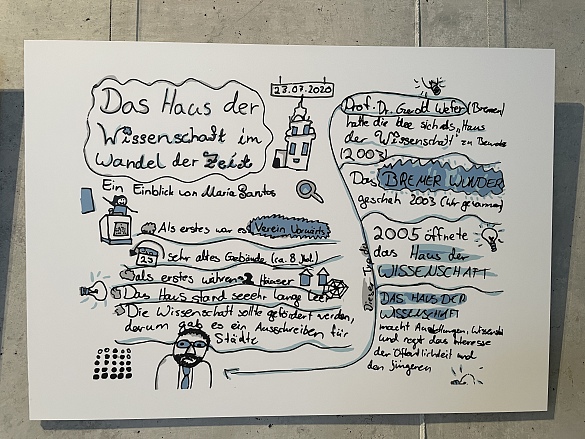 Das Haus der
Wissenschaft im
Wandel der Zeit
23.07.2020
Ein Einblick von Maria Santos
Als erstes war es Verein Vorwärts
23
sehr altes Gebäude, (ca. 8 Jhd.)
als erstes waren 2 Häuser
Das Haus stand seeehr lange leer
Die Wissenschaft sollte gefördert werden,
darum gab es ein Ausschreiben für
Städte
Prof. Dr. Gerold Wefer (Bremen)
hatte die Idee sich als "Haus
der Wissenschaft" zu
(2003)
Das BREMER WUNDER
geschah 2003 (Wir gewannen)
2005 öffnete
das Haus der
WISSENSCHAFT
DAS HAUS DER
WISSENSCHAFT
macht Ausstellungen,
und regt das Interesse
der Öffentlichkeit und
den Jüngeren
Dieser